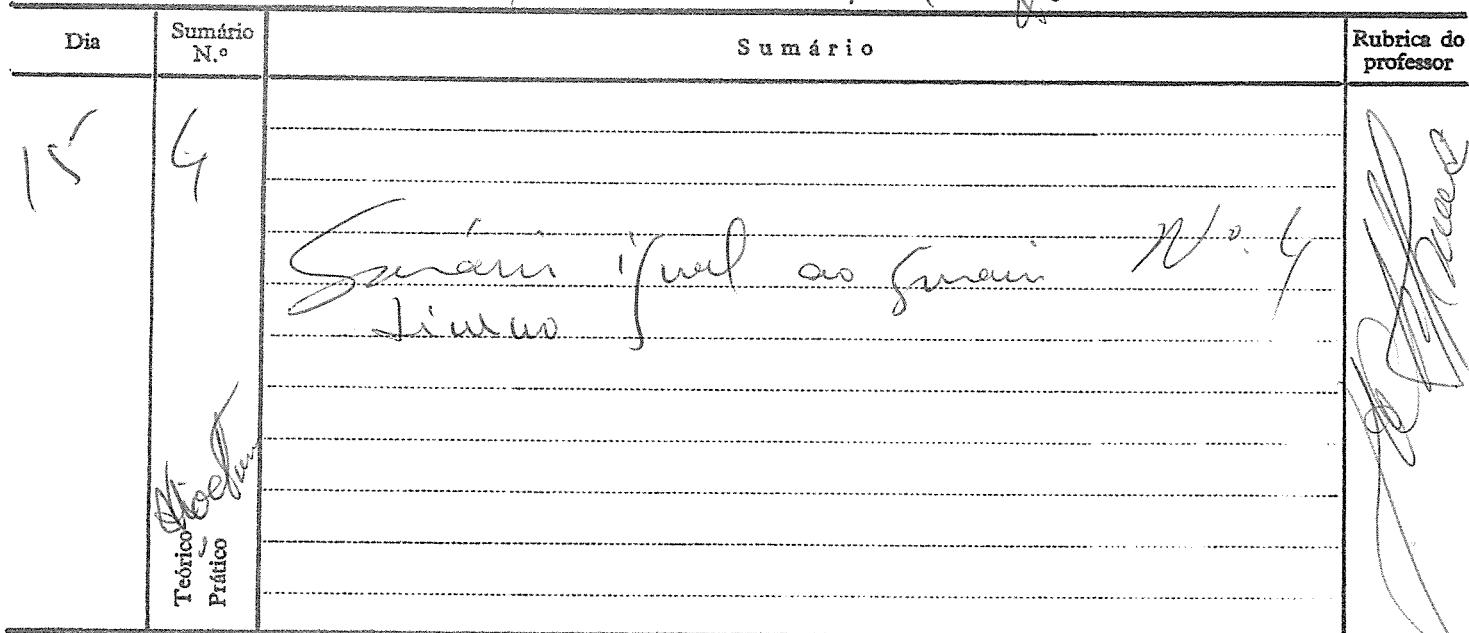 Dia
Sumário N.º
Sumário
Rubrica do professor
15
4
Sumário igual ao Sumário Nº. 4
diurno
Teórico
Prático